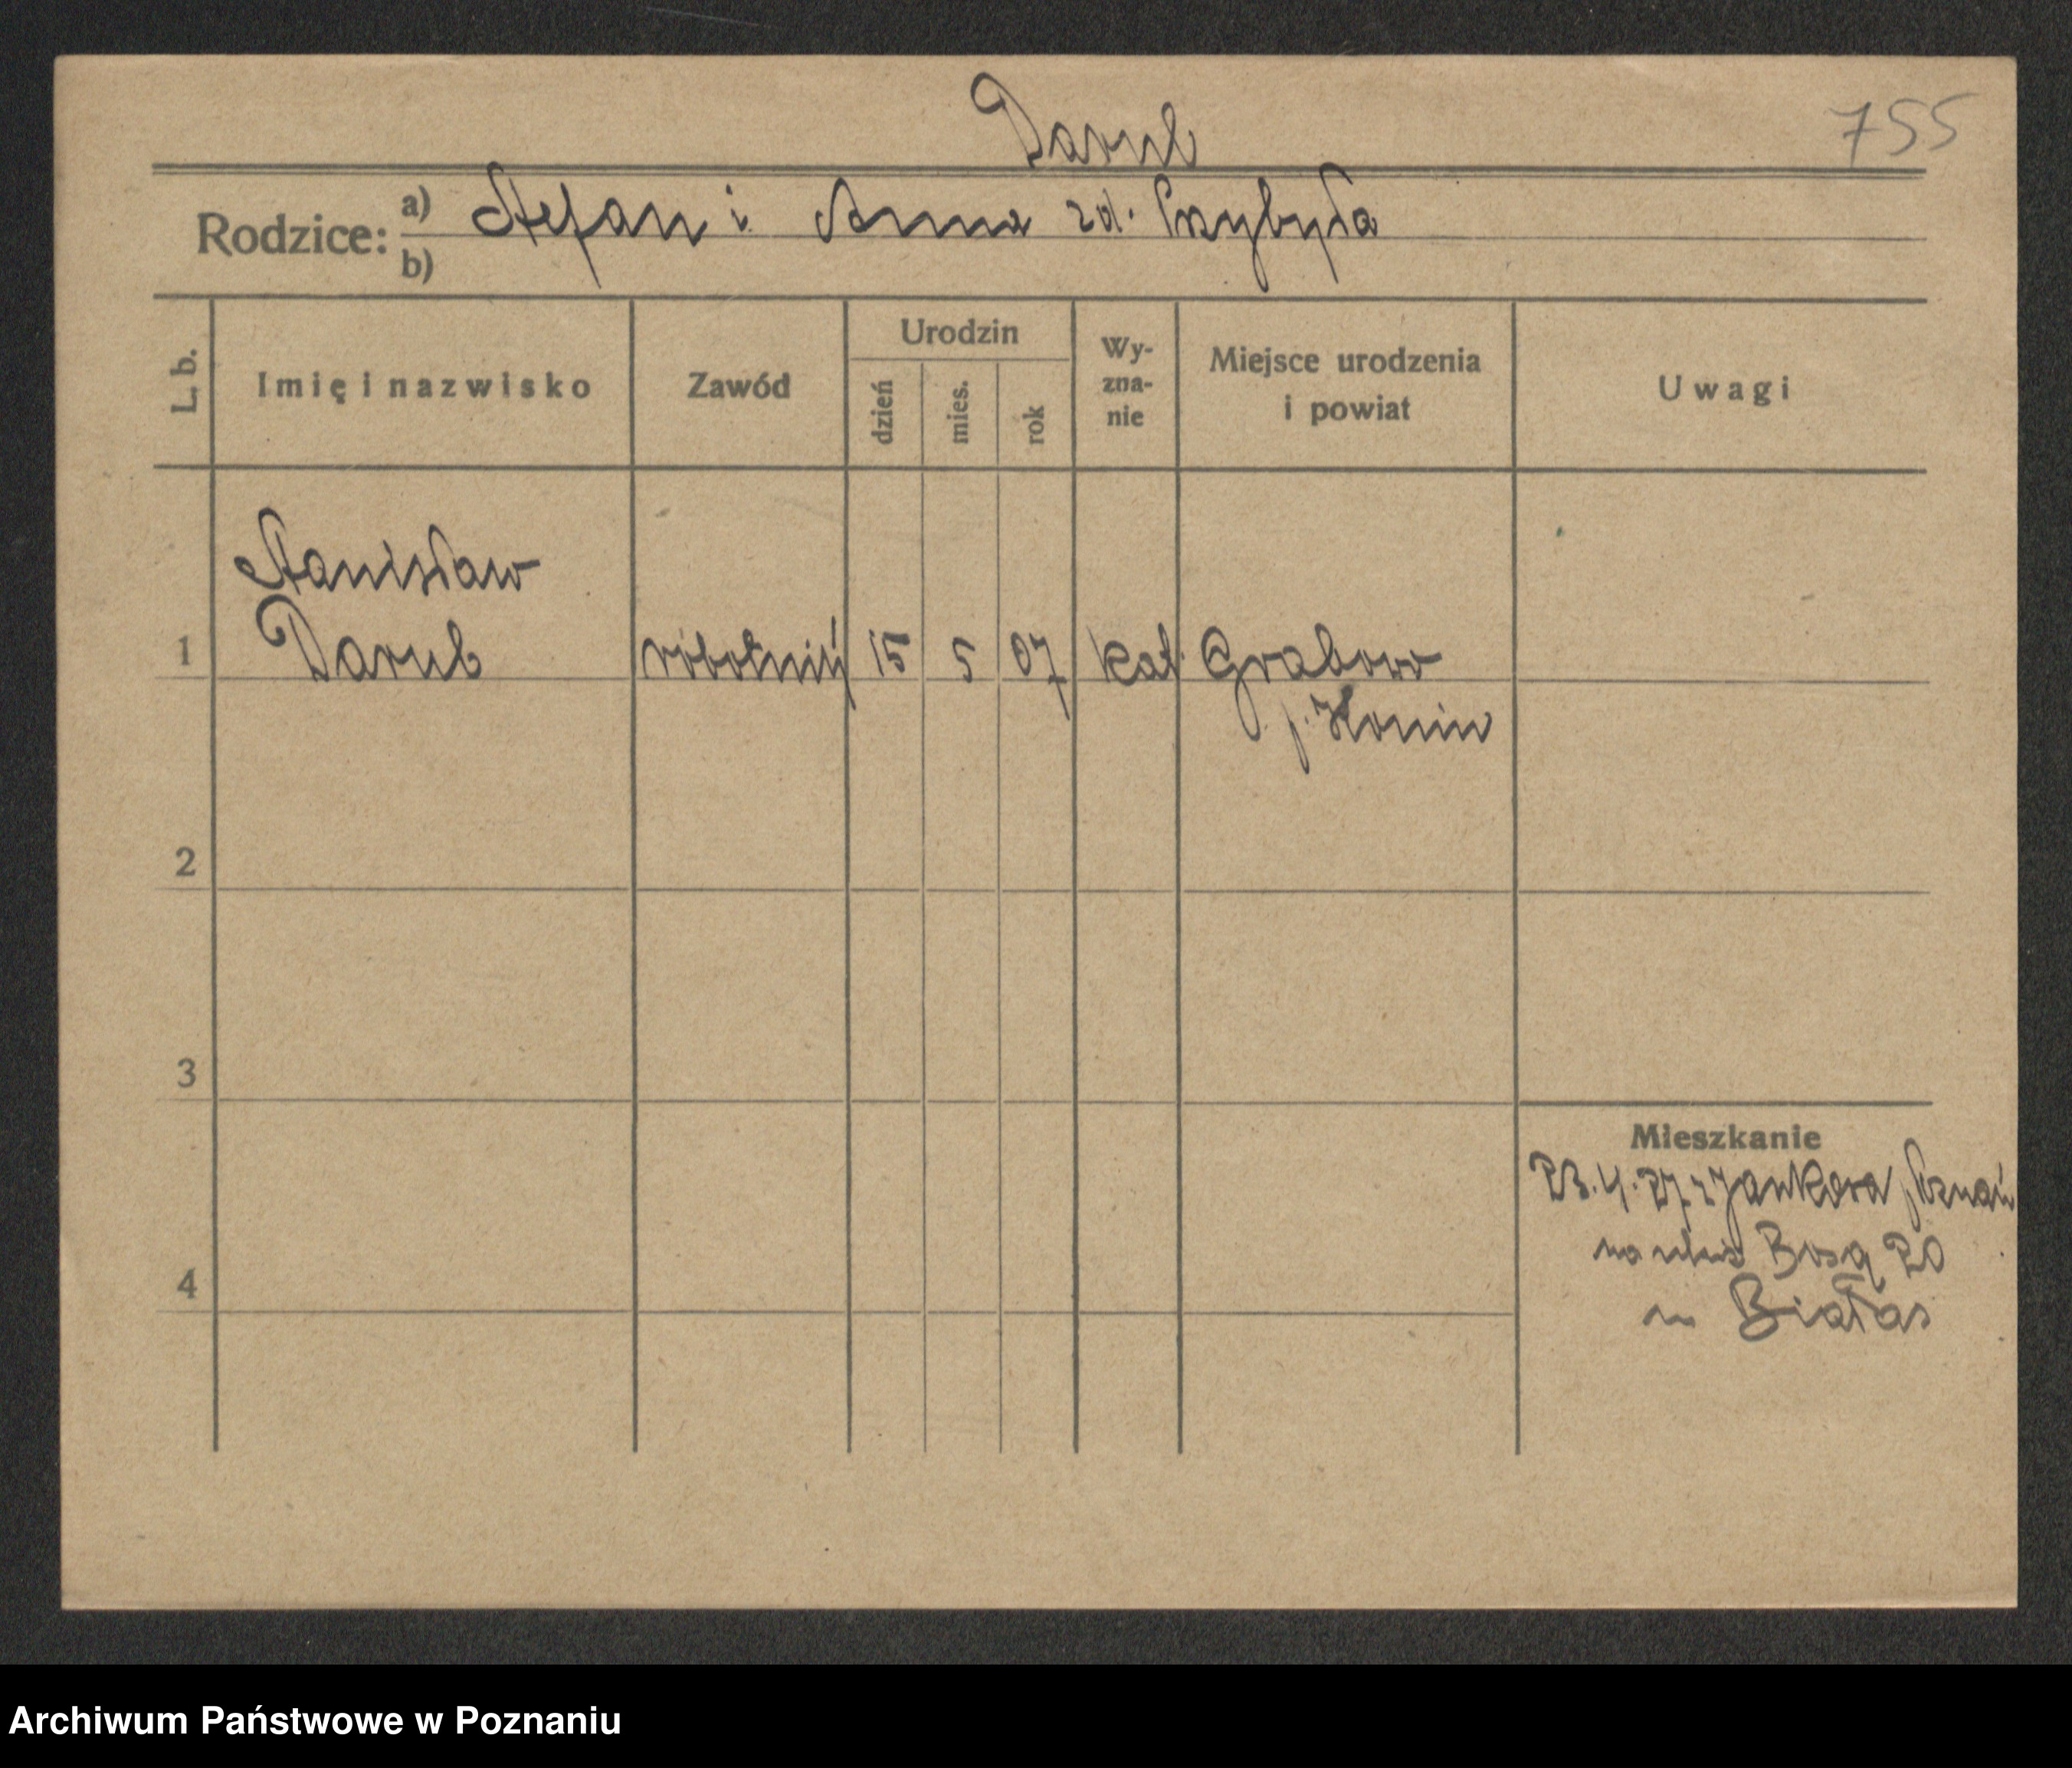 Darul
755
Rodzice: a) Stefan i Anna zd. Przybyła
b)
L. b.
Imię i nazwisko
Zawód
Urodzin
dzień
mies.
rok
Wy-
zna-
nie
Miejsce urodzenia
i powiat
Uwagi
Stanisław
1 Darul robotnik 15 5 07 kat. Grabowo
p. Konin
2
3
4
Mieszkanie
23.4.27 z Jankowa p. Poznań
na Bosą 20
u Białas
Archiwum Państwowe w Poznaniu